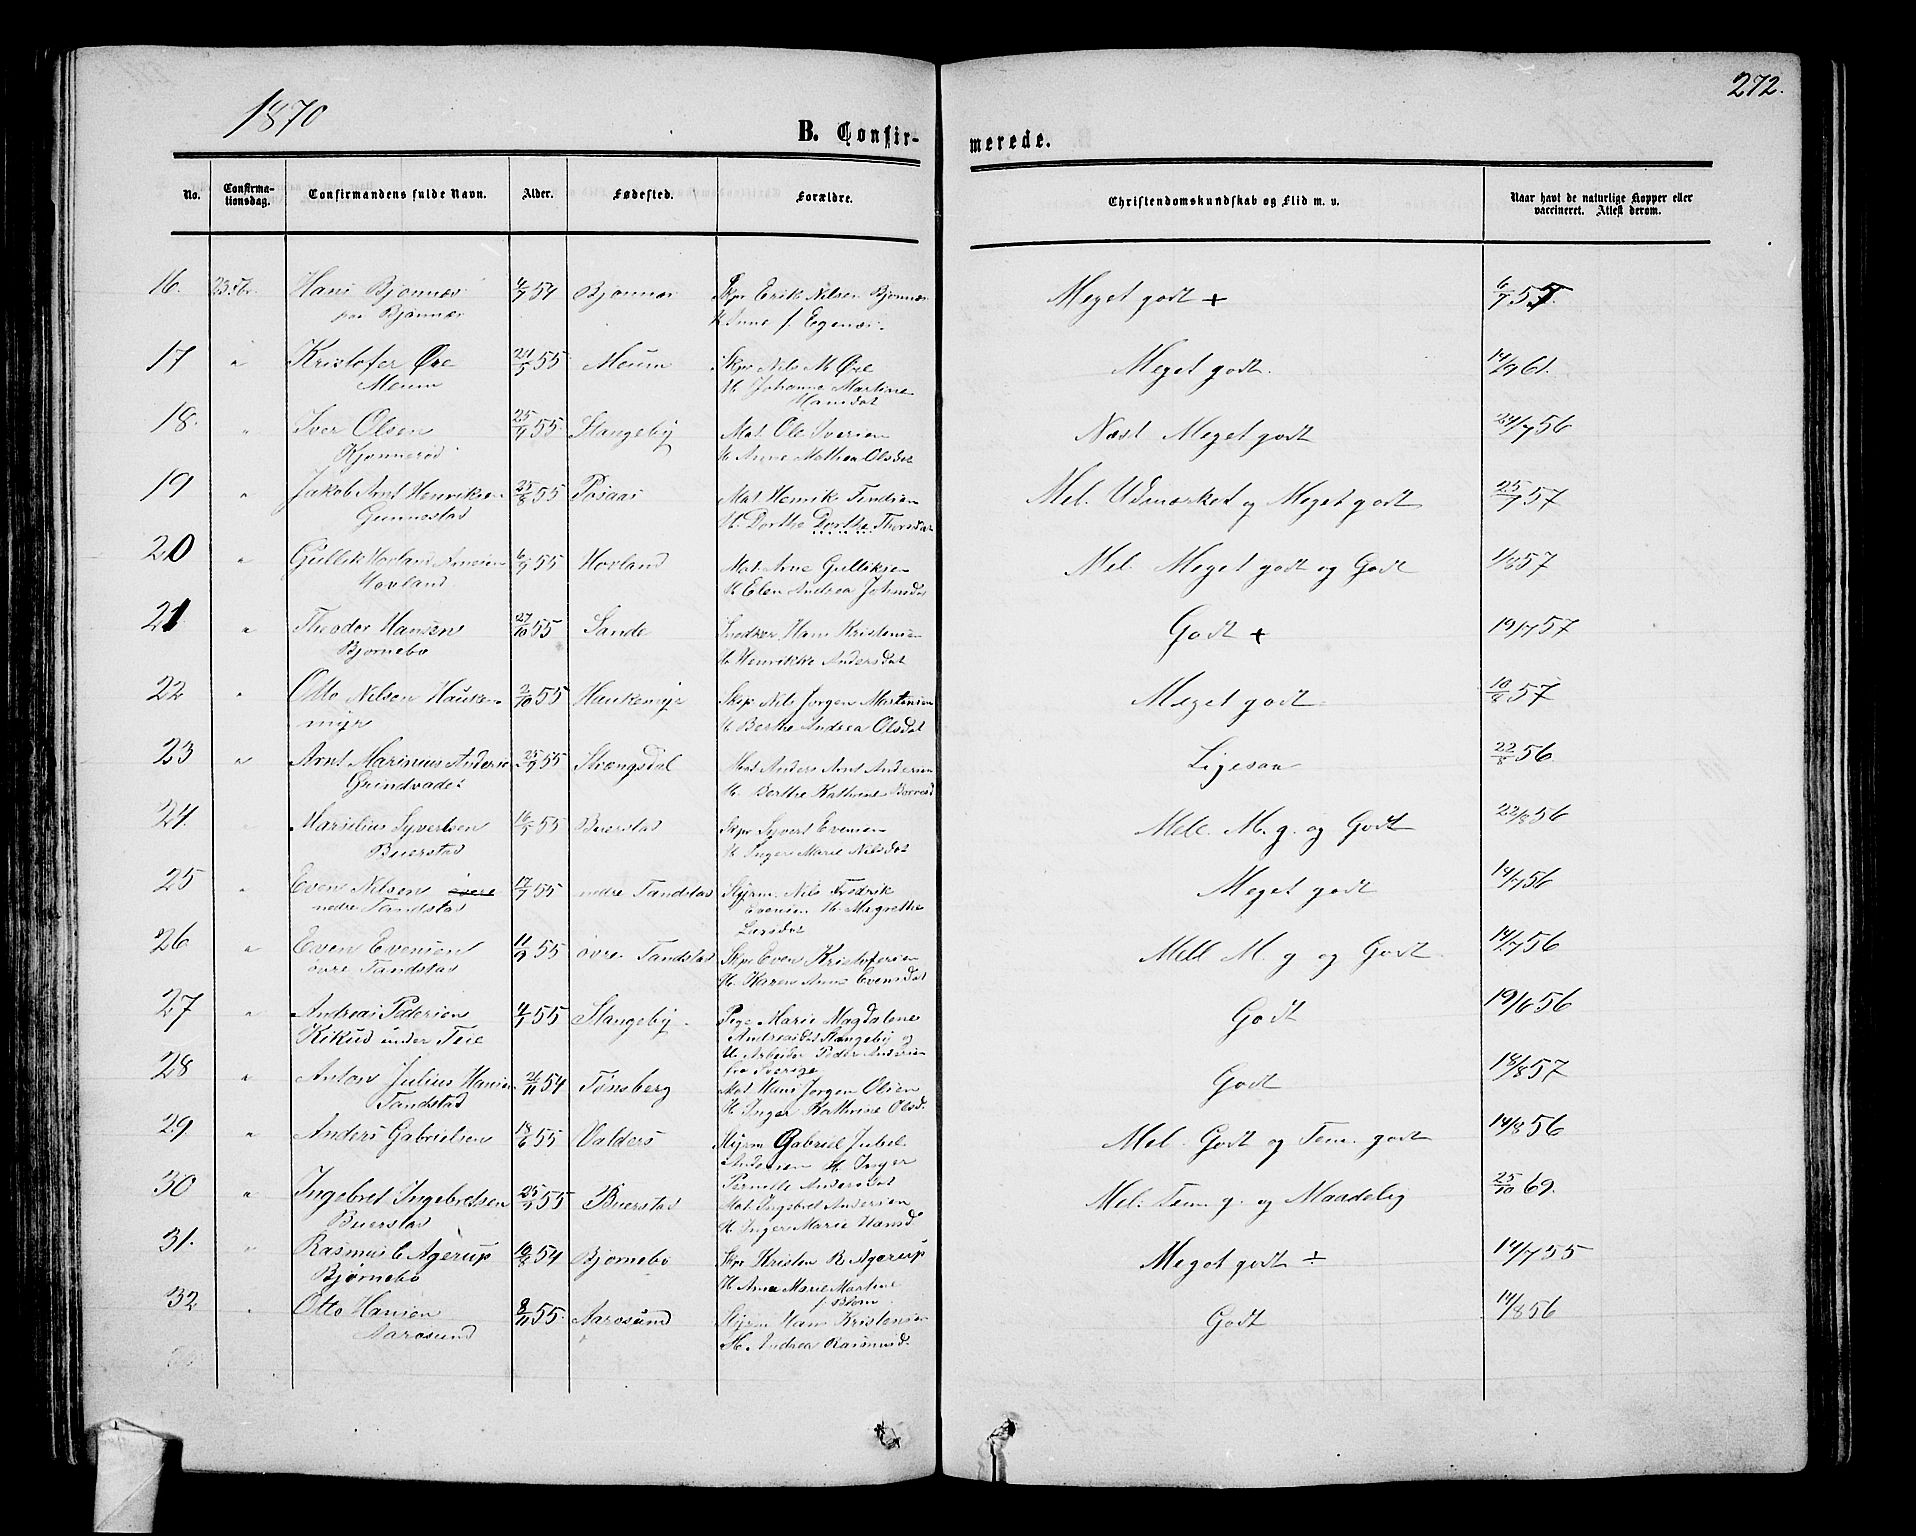 272.
1870
B. Confir-
merede.
No.
Confirma-
tionsdag.
Confirmandens fulde Navn.
Alder.
Fødested.
Forældre.
Christendomskundskab og Flid m. v.
Naar havt de naturlige Kopper eller
vaccineret. Attest derom.
16. Hans Bjønnæs 4/7 54 Bjønnæs Skpr Erik Nilsen Bjønnæs Meget godt + 6/7 55.
Bjønnæs H. Anne f. Egenæs.
17 " Kristofer Øre 24/5 55 Meum Skpr Nils M Øre Meget godt. 14/9 61.
Meum H. Johanne Martine
Hansdat
18. " Iver Olsen 25/4 55 Stangeby Mat. Ole Iversen Næst Meget godt 24/7 56
Kjønnerød H. Anne Mathea Olsdat
19 " Jakob Arnt Henriksen 25/8 55 Mat Henrik Mel. Udmærket og Meget godt 25/7 57
Gunnestad H. Dorthe Dorthe Thorsdat
20 " Gullik Hovland Arnesen 6/9 55 Hovland Mat. Arne Gulliksen Mel. Meget godt og Godt 1/8 57
Hovland H Elen Andrea Johnsdat
21 " Theodor Hansen 27/10 55 Sande Snedker Hans Kristensen Godt + 19/7 57
Bjørnebo H Henrikke Andersdat
22 " Otto Nilsen Hauke- 2/10 55 Haukemyr Skpr Nils Jørgen Martinsen Meget godt 10/8 57
myr H Berthe Andrea Olsdat
23 " Arnt Marinius Andersen 25/9 55 Strængsdal Mat Anders Arnt Andersen Ligesaa 22/8 56.
H. Berthe Kathrine
24. Marselius Syvertsen 16/5 55 Buerstad Skpr Syvert Evensen Mell. M. g. og Godt 22/8 56
Buerstad H Inger Marie Nilsdat
25 " Even Nilsen øvre 17/7 55 nedre Tandstad Styrm. Nils Fredrik Meget godt 14/7 56
nedre Tandstad Evensen H. Magrethe
Larsdat
26 " Even Evensen 11/9 55 øvre Tandstad Skpr Even Kristofersen Mell M. g og Godt 14/7 56
øvre Tandstad H. Karen Anne Evensdat
27 " Andreas Pedersen 4/5 55 Stangeby. Pige Marie Magdalene Godt 19/6 56
Kikud under Teie Andreasdat Stangeby og
U. Arbeider Peder Andersen
fra Sverige
28 " Anton Julius Hansen 26/11 54 Tønsberg Mat Hans Jørgen Olsen Godt 18/8 57
Tandstad H Inger Kathrine Olsd.
29 " Anders Gabrielsen 18/6 55 Valders Styrm Gabriel Juhel Mel. Godt og Tem. godt 14/8 56
Andersen H. Inger
Pernelle Andersdat
30 " Ingebret Ingebretsen 25/9 55 Buerstad Mat. Ingebret Andersen Mel. Tem g. og Maadelig 25/10 69.
Buerstad H. Inger Marie Hansd
31. " Rasmus C Agerup 10/8 54 Bjørnebo Skpr Kristen R Agerup Meget godt ÷ 14/7 55
Bjørnebo H Anna Marie Martine
f. Blom
32 " Otto Hansen 8/11 55. Aarøsund Styrm Hans Kristensen Godt 14/8 56
Aarøsund H. Andrea Rasmusd.